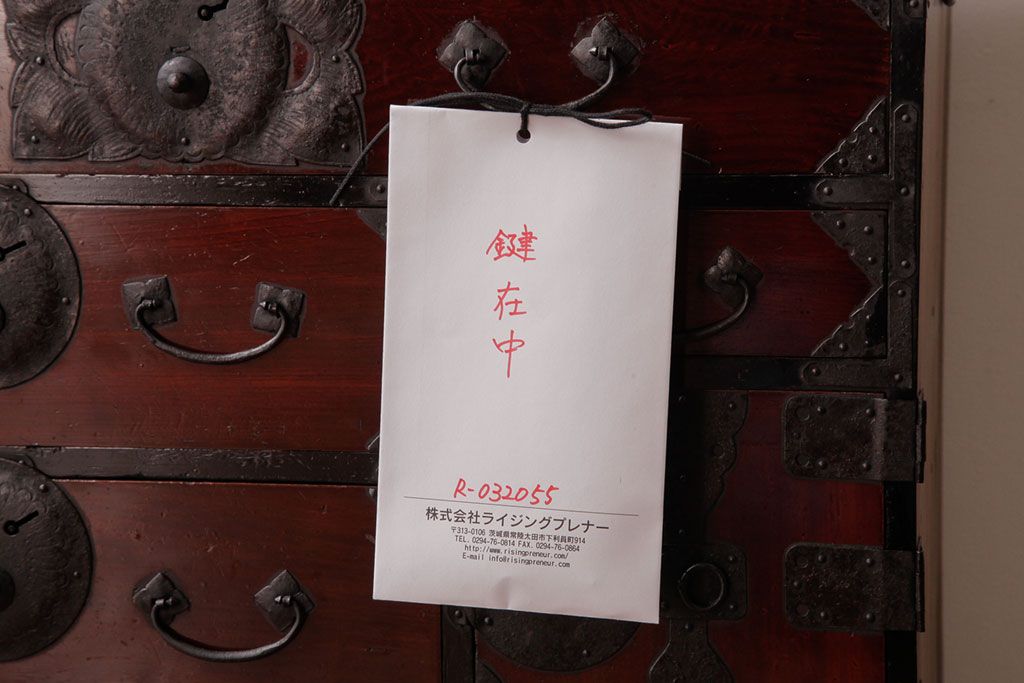 鍵在中
R-032055
株式会社ライジングプレナー
〒313-0106 茨城県常陸太田市下利員町914
TEL. 0294-76-0814 FAX. 0294-76-0864
http://www.risingpreneur.com/
E-mail info@risingpreneur.com